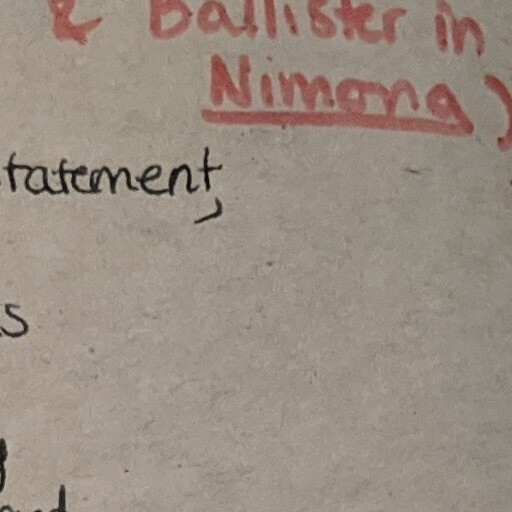 & Ballister in
Nimona)
tatement,
s